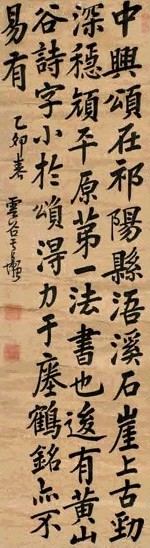 中興頌在祁陽縣浯溪石崖上古勁
深穩顔平原第一法書也後有黃山
谷詩字小於頌淂力于瘞鶴銘亦不
易有
乙卯春 雲谷